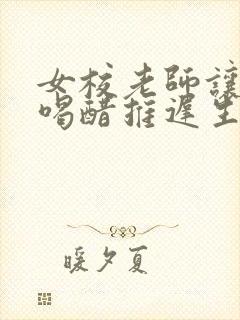 女校老師讓
喝醋推遲生
暖夕夏